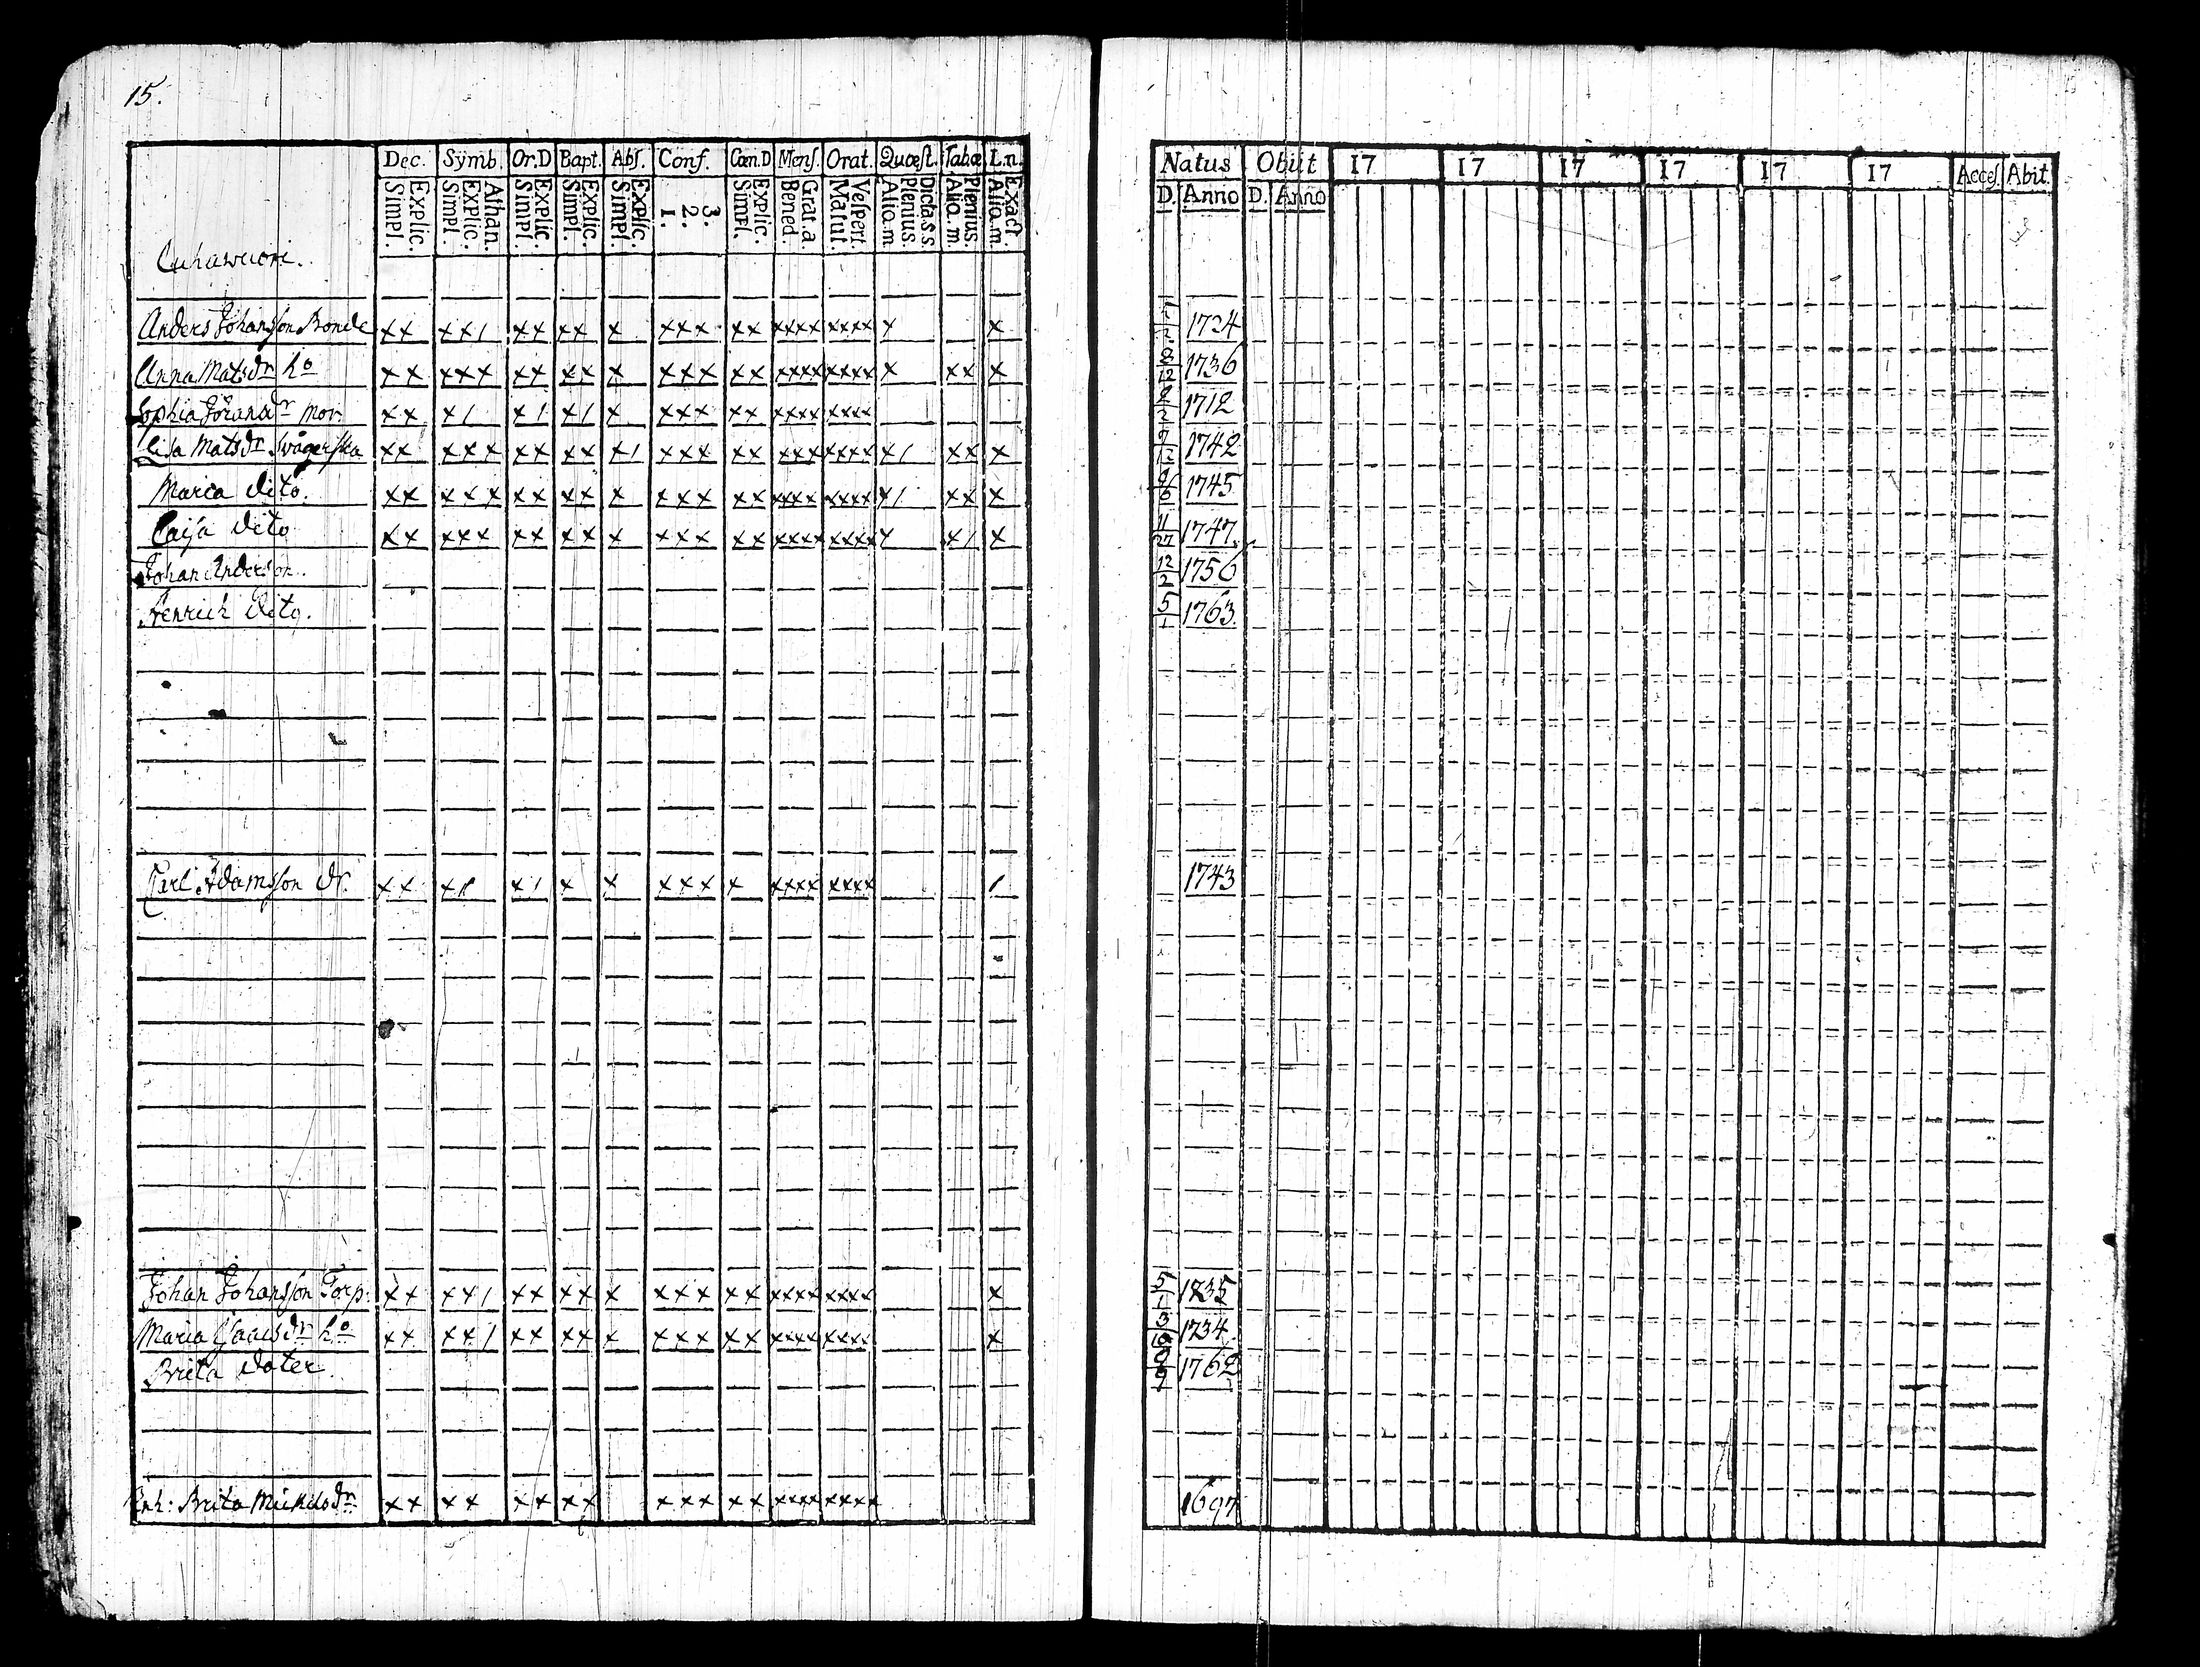 15.
Dec. Symb. Or.D Bapt. Abſ. Conf. Cœn.D Menſ. Orat. Quæſt. Tabæ L.n.
Explic. Simpl. Athan. Explic. Simpl. Explic. Simpl. Explic. Simpl. Explic. Simpl. 3. 2. 1. Explic. Simpl. Grat.a Bened. Veſpert. Matut. Dicta.s.s. Plenius. Alio.m. Plenius. Alio.m. Exact. Alio.m.
Natus Obiit 17 17 17 17 17 17 Acceſ. Abit.
D. Anno D. Anno
Cuhawuori.
Anders Johansson Bonde xx xx1 xx xx x xxx xx xxxx xxxx x x 1724
Anna Matsdr ho xx xxx xx xx x xxx xx xxxx xxxx x xx x 2/12 1736
Sophia Jöransdr mor. xx x1 x1 x1 x xxx xx xxxx xxxx 1712
Lisa Matsdr Swägerska xx xxx xx xx x1 xxx xx xxxx xxxx x1 xx x 1742
Maria dito. xx xxx xx xx x xxx xx xxxx xxxx x1 xx x 1745
Caisa dito xx xxx xx xx x xxx xx xxxx xxxx x x1 x 11/27 1747
Johan Anderson. 12/2 1756
Henrich dito. 5/1 1763.
Carl Adamsson dr. xx x1 x x xxx x xxxx xxxx 1 1743
Johan Johansson Torp: xx xx1 xx xx x xxx xx xxxx xxxx x 5/1 1735
Maria Isaacsdr ho xx xx1 xx xx x xxx xx xxxx xxxx x 3/10 1734
Brita doter. 1762
Enk: Brita Mickelsdr xx xx xx xx xxx xx xxxx xxxx 1697